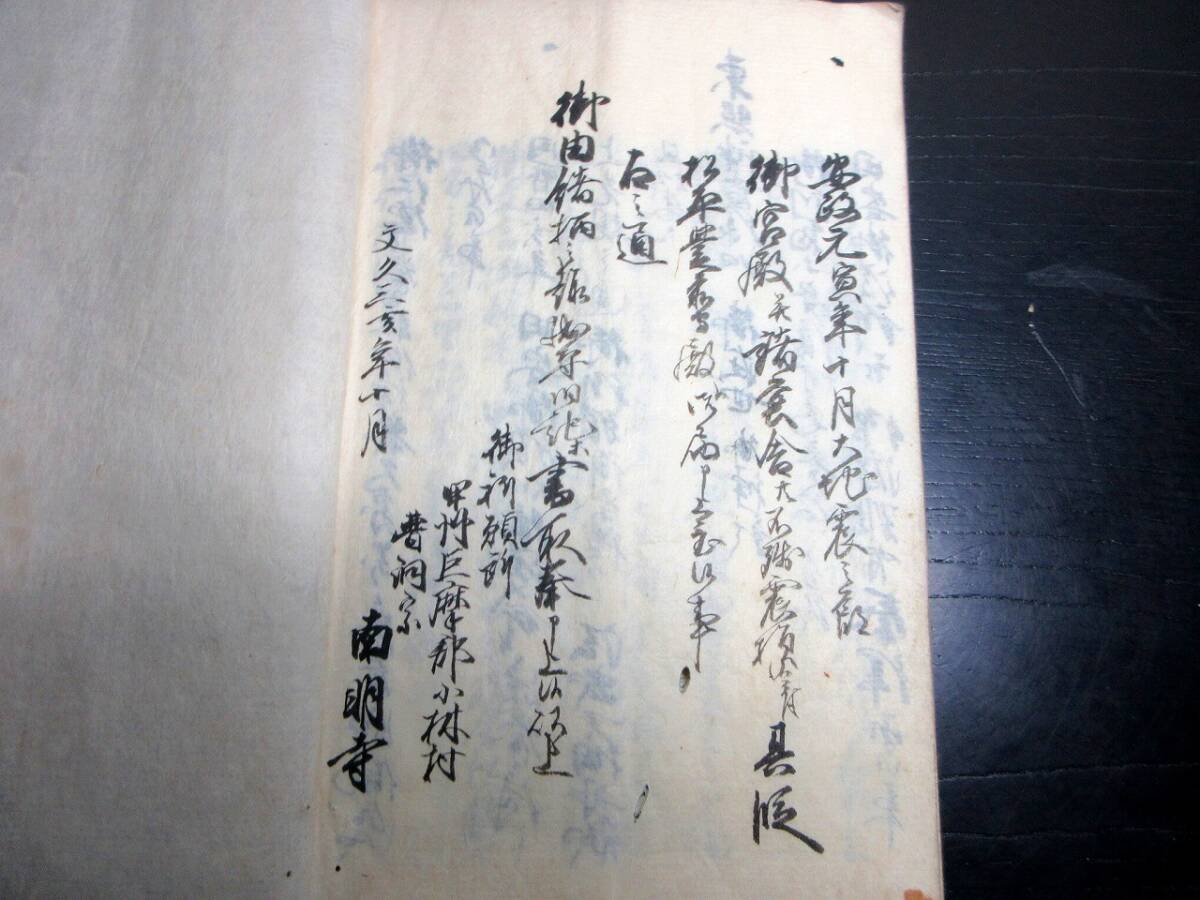 安政元寅年十月大地震之節
御宮殿並諸堂舎大不残震損仕 其段
松平豊前殿御届申上置候事
右之通
御由緒柄之趣 御尋ニ付 書取奉申上候以上
御祈願所
甲州巨摩郡小林村
曹洞宗
南明寺
文久三亥年十月